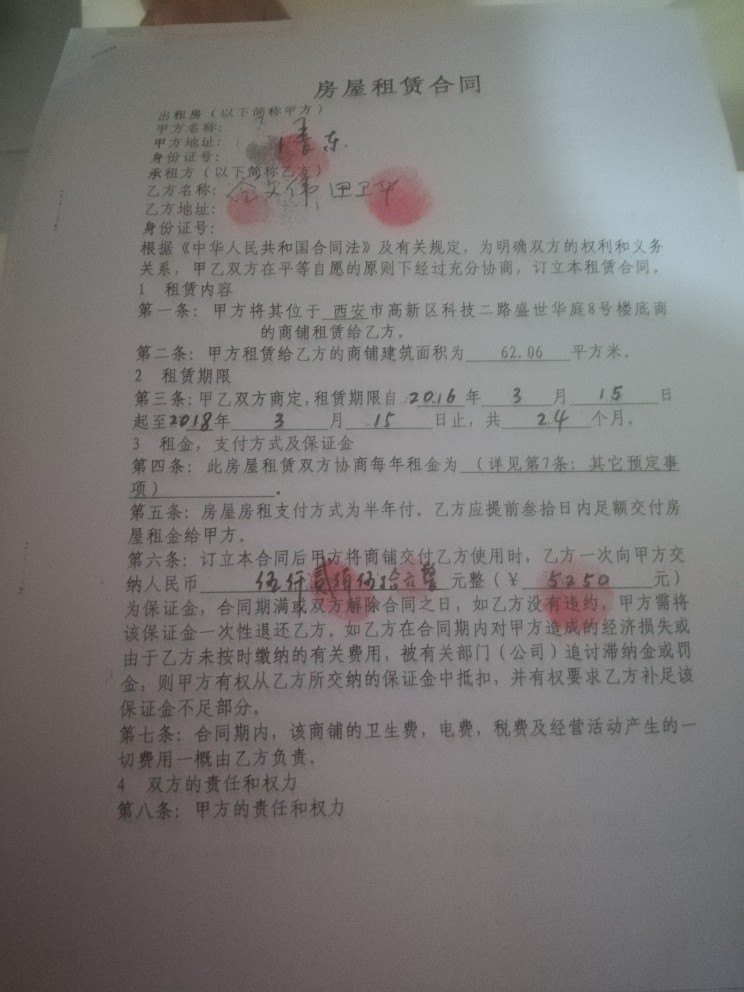 房屋租赁合同
出租房（以下简称甲方）
甲方名称：
甲方地址：
身份证号：
承租方（以下简称乙方）
乙方名称：
乙方地址：
身份证号：
根据《中华人民共和国合同法》及有关规定，为明确双方的权利和义务
关系，甲乙双方在平等自愿的原则下经过充分协商，订立本租赁合同。
1 租赁内容
第一条：甲方将其位于 西安市高新区科技二路盛世华庭8号楼底商
的商铺租赁给乙方。
第二条：甲方租赁给乙方的商铺建筑面积为 62.06 平方米。
2 租赁期限
第三条：甲乙双方商定，租赁期限自 2016 年 3 月 15 日
起至2018年 3 月 15 日止，共 24 个月。
3 租金，支付方式及保证金
第四条：此房屋租赁双方协商每年租金为 （详见第7条：其它预定事
项） 。
第五条：房屋房租支付方式为半年付。乙方应提前叁拾日内足额交付房
屋租金给甲方。
第六条：订立本合同后甲方将商铺交付乙方使用时，乙方一次向甲方交
纳人民币 伍仟贰佰伍拾元整 元整（￥ 5250 元）
为保证金，合同期满或双方解除合同之日，如乙方没有违约，甲方需将
该保证金一次性退还乙方。如乙方在合同期内对甲方造成的经济损失或
由于乙方未按时缴纳的有关费用，被有关部门（公司）追讨滞纳金或罚
金，则甲方有权从乙方所交纳的保证金中抵扣，并有权要求乙方补足该
保证金不足部分。
第七条：合同期内，该商铺的卫生费，电费，税费及经营活动产生的一
切费用一概由乙方负责。
4 双方的责任和权力
第八条：甲方的责任和权力